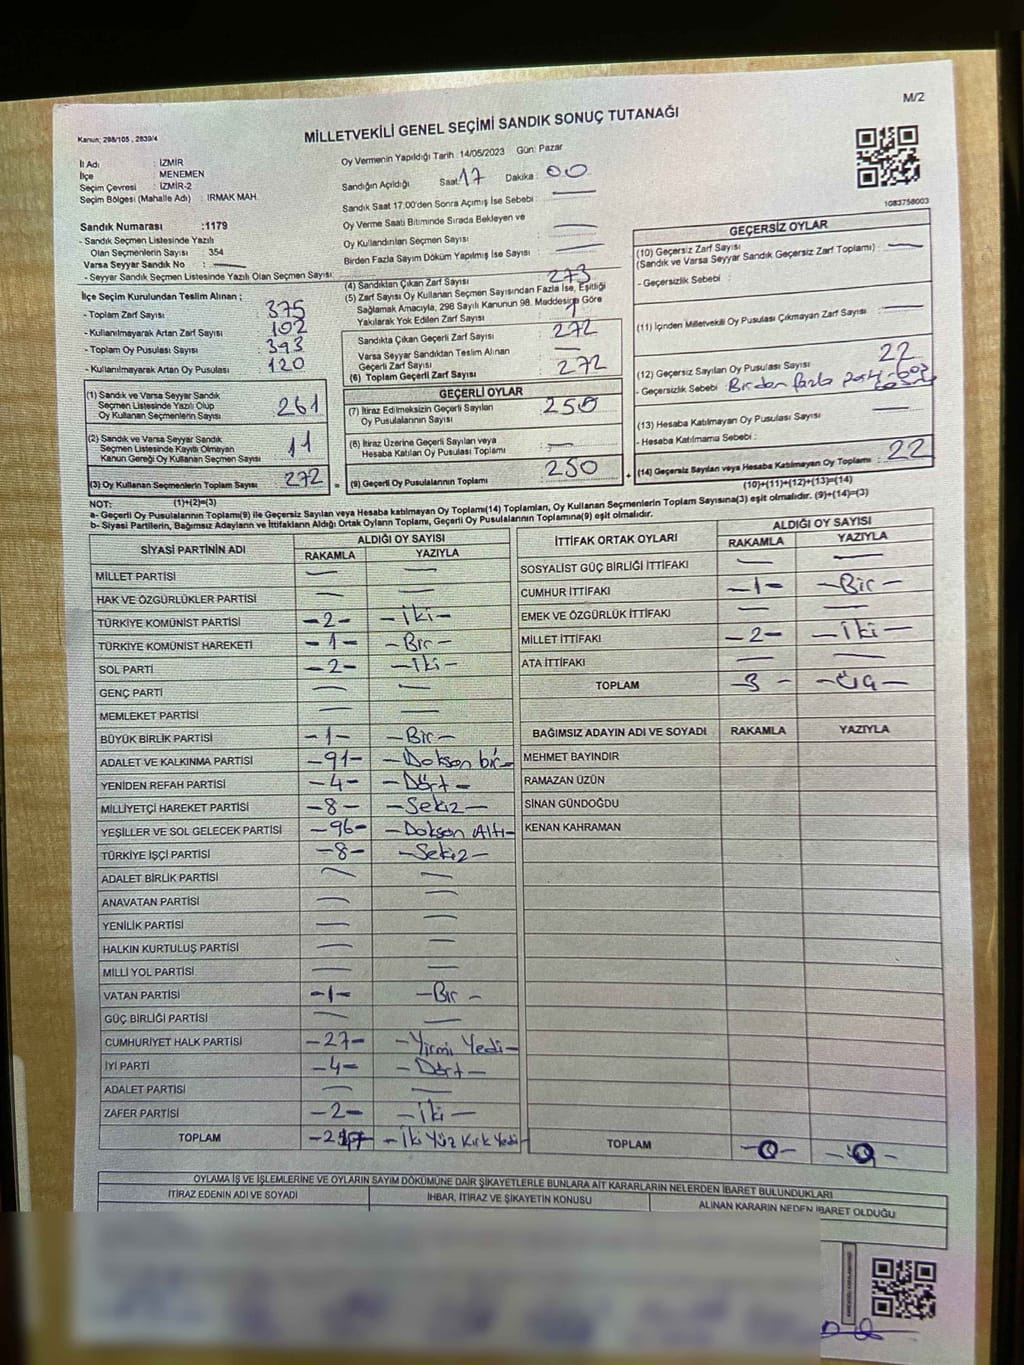 M/2
Kanun; 298/105 , 2839/4
MİLLETVEKİLİ GENEL SEÇİMİ SANDIK SONUÇ TUTANAĞI
İl Adı : İZMİR
İlçe : MENEMEN
Seçim Çevresi : İZMİR-2
Seçim Bölgesi (Mahalle Adı) : IRMAK MAH.
Oy Vermenin Yapıldığı Tarih :14/05/2023 Gün: Pazar
Sandığın Açıldığı Saat: 17 Dakika : 00
Sandık Saat 17:00'den Sonra Açımış İse Sebebi : —
Oy Verme Saati Bitiminde Sırada Bekleyen ve
Oy Kullandırılan Seçmen Sayısı : —
Birden Fazla Sayım Döküm Yapılmış İse Sayısı : —
1083758003
Sandık Numarası :1179
- Sandık Seçmen Listesinde Yazılı
Olan Seçmenlerin Sayısı : 354
Varsa Seyyar Sandık No : —
- Seyyar Sandık Seçmen Listesinde Yazılı Olan Seçmen Sayısı:
İlçe Seçim Kurulundan Teslim Alınan ;
- Toplam Zarf Sayısı : 375
- Kullanılmayarak Artan Zarf Sayısı : 102
- Toplam Oy Pusulası Sayısı : 393
- Kullanılmayarak Artan Oy Pusulası : 120
(1) Sandık ve Varsa Seyyar Sandık
Seçmen Listesinde Yazılı Olup
Oy Kullanan Seçmenlerin Sayısı 261
(2) Sandık ve Varsa Seyyar Sandık
Seçmen Listesinde Kayıtlı Olmayan
Kanun Gereği Oy Kullanan Seçmen Sayısı 11
(3) Oy Kullanan Seçmenlerin Toplam Sayısı 272
(1)+(2)=(3)
(4) Sandıktan Çıkan Zarf Sayısı : 273
(5) Zarf Sayısı Oy Kullanan Seçmen Sayısından Fazla İse, Eşitliği
Sağlamak Amacıyla, 298 Sayılı Kanunun 98. Maddesine Göre
Yakılarak Yok Edilen Zarf Sayısı : 1
Sandıkta Çıkan Geçerli Zarf Sayısı 272
Varsa Seyyar Sandıktan Teslim Alınan
Geçerli Zarf Sayısı —
(6) Toplam Geçerli Zarf Sayısı 272
GEÇERLİ OYLAR
(7) İtiraz Edilmeksizin Geçerli Sayılan
Oy Pusulalarının Sayısı 250
(8) İtiraz Üzerine Geçerli Sayılan veya
Hesaba Katılan Oy Pusulası Toplamı —
= (9) Geçerli Oy Pusulalarının Toplamı 250 +
GEÇERSİZ OYLAR
(10) Geçersiz Zarf Sayısı
(Sandık ve Varsa Seyyar Sandık Geçersiz Zarf Toplamı) : —
- Geçersizlik Sebebi :
(11) İçinden Milletvekili Oy Pusulası Çıkmayan Zarf Sayısı : —
(12) Geçersiz Sayılan Oy Pusulası Sayısı : 22
- Geçersizlik Sebebi : Birden fazla
(13) Hesaba Katılmayan Oy Pusulası Sayısı : —
- Hesaba Katılmama Sebebi :
(14) Geçersiz Sayılan veya Hesaba Katılmayan Oy Toplamı : 22
(10)+(11)+(12)+(13)=(14)
NOT:
a- Geçerli Oy Pusulalarının Toplamı(9) ile Geçersiz Sayılan veya Hesaba katılmayan Oy Toplamı(14) Toplamları, Oy Kullanan Seçmenlerin Toplam Sayısına(3) eşit olmalıdır. (9)+(14)=(3)
b- Siyasi Partilerin, Bağımsız Adayların ve İttifakların Aldığı Ortak Oyların Toplamı, Geçerli Oy Pusulalarının Toplamına(9) eşit olmalıdır.
SİYASİ PARTİNİN ADI ALDIĞI OY SAYISI
RAKAMLA YAZIYLA
MİLLET PARTİSİ — —
HAK VE ÖZGÜRLÜKLER PARTİSİ — —
TÜRKİYE KOMÜNİST PARTİSİ -2- -iki-
TÜRKİYE KOMÜNİST HAREKETİ -1- -Bir-
SOL PARTİ -2- -iki-
GENÇ PARTİ — —
MEMLEKET PARTİSİ — —
BÜYÜK BİRLİK PARTİSİ -1- -Bir-
ADALET VE KALKINMA PARTİSİ -91- -Doksan bir-
YENİDEN REFAH PARTİSİ -4- -Dört-
MİLLİYETÇİ HAREKET PARTİSİ -8- -Sekiz-
YEŞİLLER VE SOL GELECEK PARTİSİ -96- -Doksan Altı-
TÜRKİYE İŞÇİ PARTİSİ -8- -Sekiz-
ADALET BİRLİK PARTİSİ — —
ANAVATAN PARTİSİ — —
YENİLİK PARTİSİ — —
HALKIN KURTULUŞ PARTİSİ — —
MİLLİ YOL PARTİSİ — —
VATAN PARTİSİ -1- -Bir-
GÜÇ BİRLİĞİ PARTİSİ — —
CUMHURİYET HALK PARTİSİ -27- -Yirmi Yedi-
İYİ PARTİ -4- -Dört-
ADALET PARTİSİ — —
ZAFER PARTİSİ -2- -iki-
TOPLAM -247- -iki Yüz Kırk Yedi-
İTTİFAK ORTAK OYLARI ALDIĞI OY SAYISI
RAKAMLA YAZIYLA
SOSYALİST GÜÇ BİRLİĞİ İTTİFAKI — —
CUMHUR İTTİFAKI -1- -Bir-
EMEK VE ÖZGÜRLÜK İTTİFAKI — —
MİLLET İTTİFAKI -2- -iki-
ATA İTTİFAKI — —
TOPLAM -3- -Üç-
BAĞIMSIZ ADAYIN ADI VE SOYADI RAKAMLA YAZIYLA
MEHMET BAYINDIR
RAMAZAN ÜZÜN
SİNAN GÜNDOĞDU
KENAN KAHRAMAN
TOPLAM -0- -0-
OYLAMA İŞ VE İŞLEMLERİNE VE OYLARIN SAYIM DÖKÜMÜNE DAİR ŞİKAYETLERLE BUNLARA AİT KARARLARIN NELERDEN İBARET BULUNDUKLARI
İTİRAZ EDENİN ADI VE SOYADI İHBAR, İTİRAZ VE ŞİKAYETİN KONUSU ALINAN KARARIN NEDEN İBARET OLDUĞU